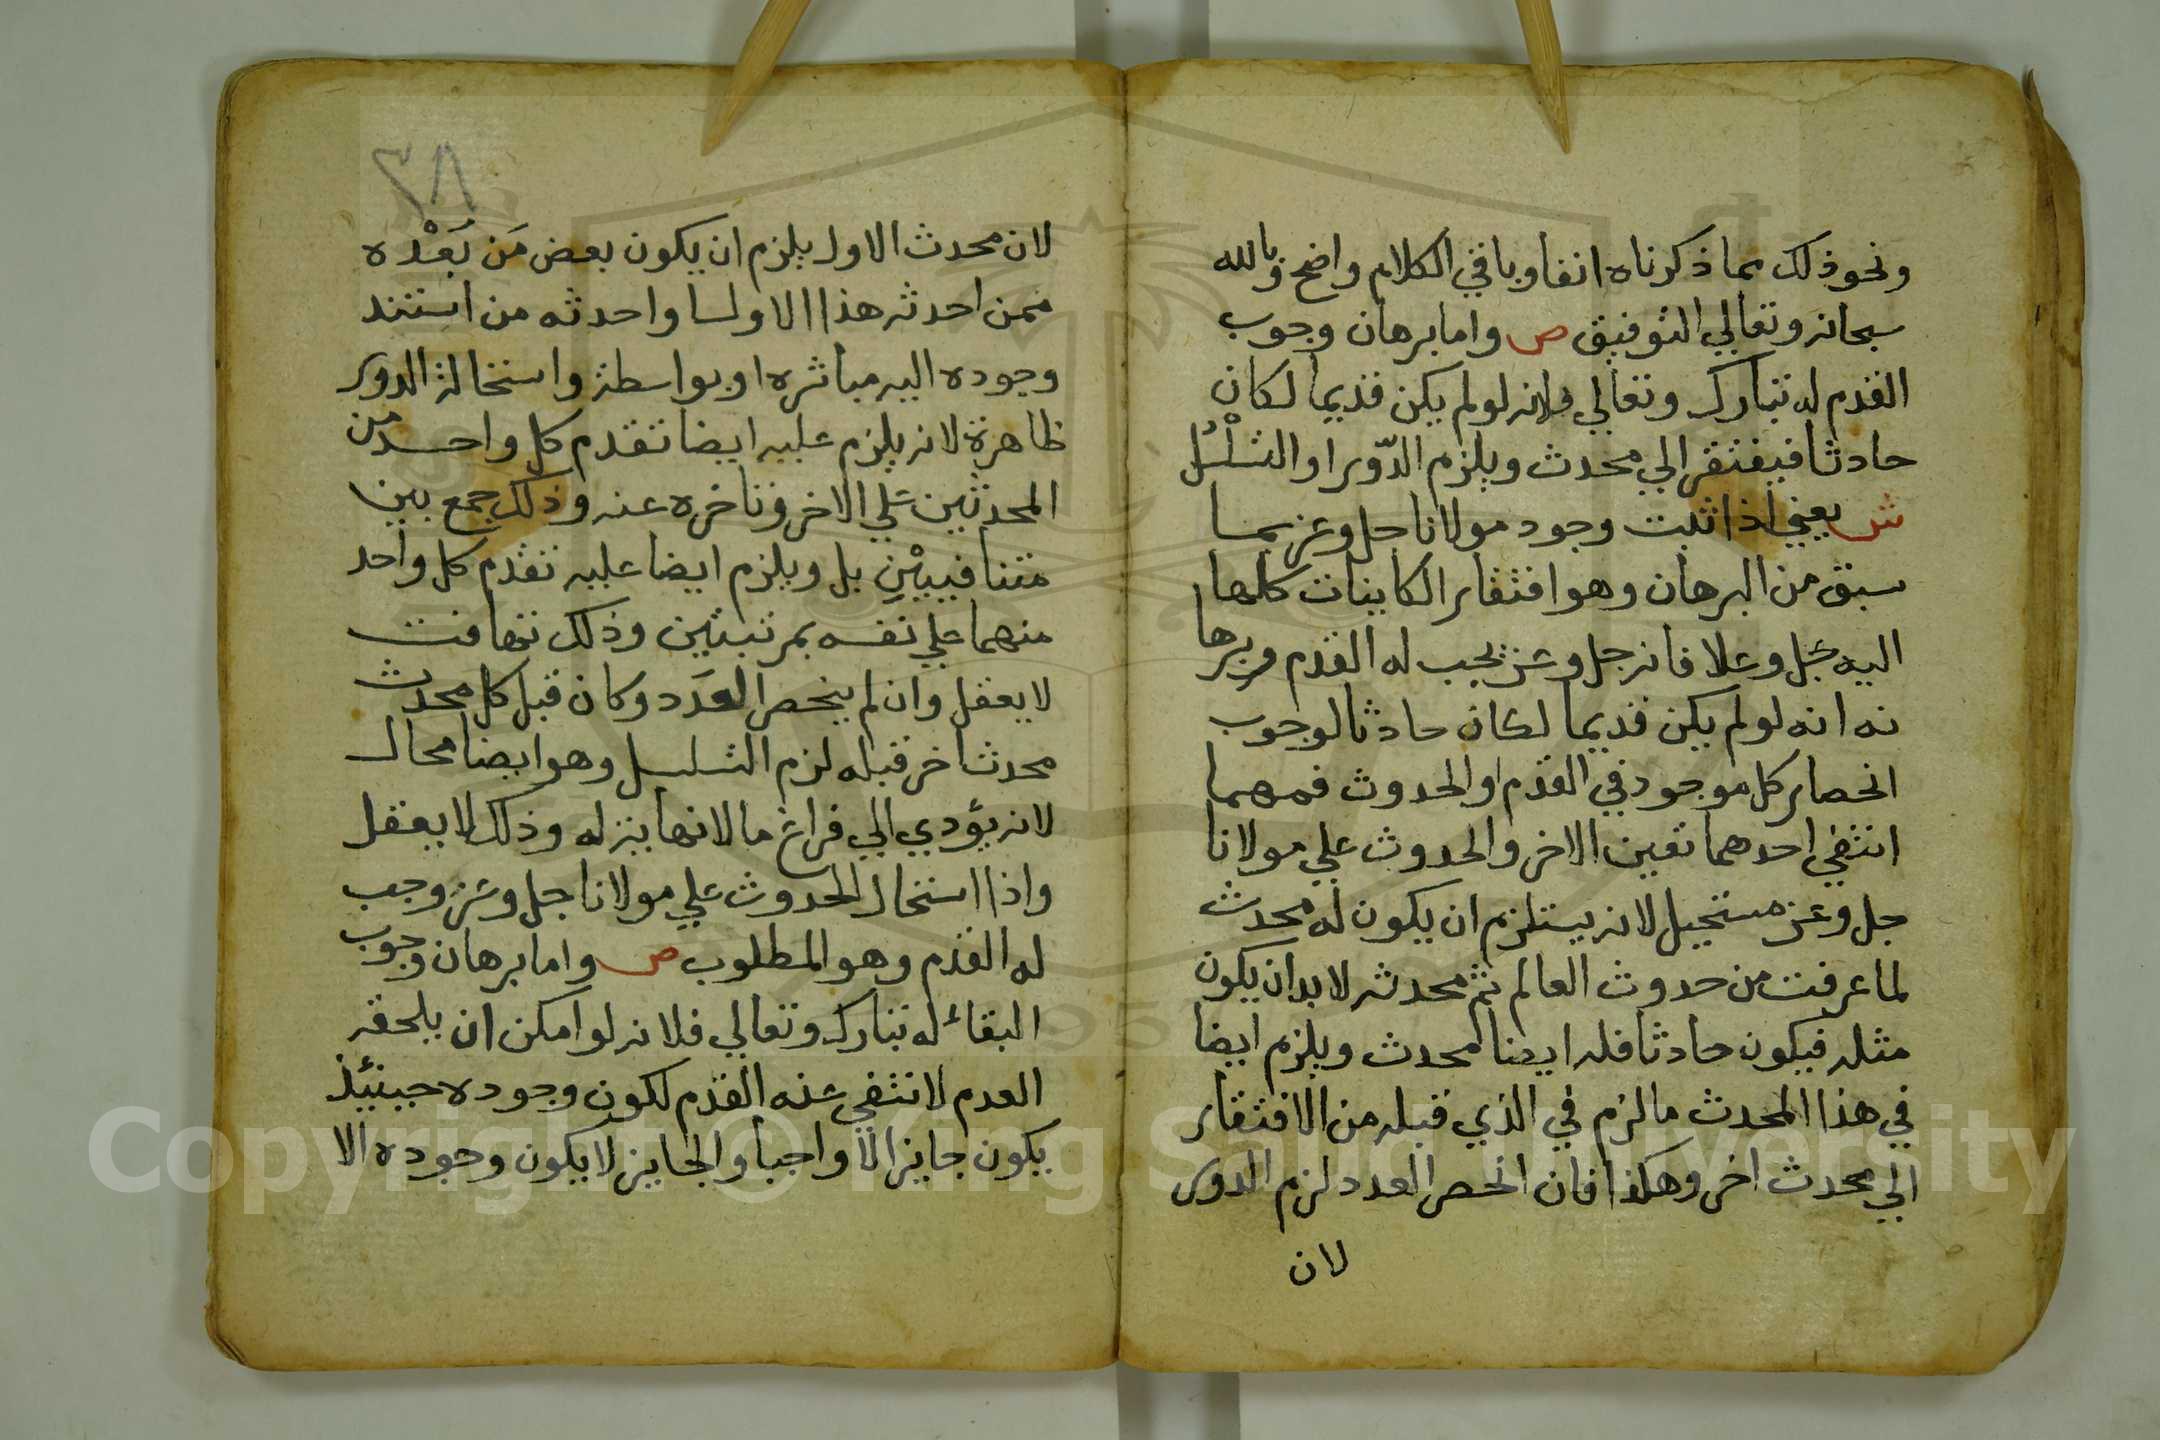 ونحو ذلك مما ذكرناه انفا وباقي الكلام واضح وبالله
سبحانه وتعالي التوفيق ص واما برهان وجوب
القدم له تبارك وتعالي فلانه لو لم يكن قديما لكان
حادثا فيفتقر الي محدث ويلزم الدّور او التسلْسُل
ش يعني اذا ثبت وجود مولانا جل وعز بما
سبق من البرهان وهو افتقار الكاينات كلها
اليه جل وعلا فانه جل وعز يجب له القدم وبرها
نه انه لو لم يكن قديما لكان حادثا لوجوب
انحصار كل موجود في القدم او الحدوث فمهما
انتفي احدهما تعين الاخر والحدوث علي مولانا
جل وعز مستحيل لانه يستلزم ان يكون له محدث
لما عرفت من حدوث العالم ثم محدثه لا بد ان يكون
مثله فيكون حادثا فله ايضا محدث ويلزم ايضا
في هذا المحدث ما لزم في الذي قبله من الافتقار
الي محدث اخر وهكذا فان انحصر العدد لزم الدور
لان
٢٨
لان محدث الاول يلزم ان يكون بعض مَن بَعْده
ممن احدثه هذا الاول او احدثه من استند
وجوده اليه مباشره او بواسطة واستحالة الدور
ظاهرة لانه يلزم عليه ايضا تقدم كل واحد من
المحدثين علي الاخر وتاخره عنه وذلك جمع بين
متنافيين بل ويلزم ايضا عليه تقدم كل واحد
منهما علي نفسه بمرتبتين وذلك تهافت
لا يعقل وان لم ينحصر العدَد وكان قبل كل محدث
محدث اخر قبله لزم التسلسل وهو ايضا محال
لانه يؤدي الي فراغ ما لا نهاية له وذلك لا يعقل
واذا استحال الحدوث علي مولانا جل وعز وجب
له القدم وهو المطلوب ص واما برهان وجوب
البقاء له تبارك وتعالي فلانه لو امكن ان يلحقه
العدم لانتفي عنه القدم لكون وجوده حينئذ
يكون جايزا لا واجبا والجايز لا يكون وجوده الا
Copyright © King Saud University